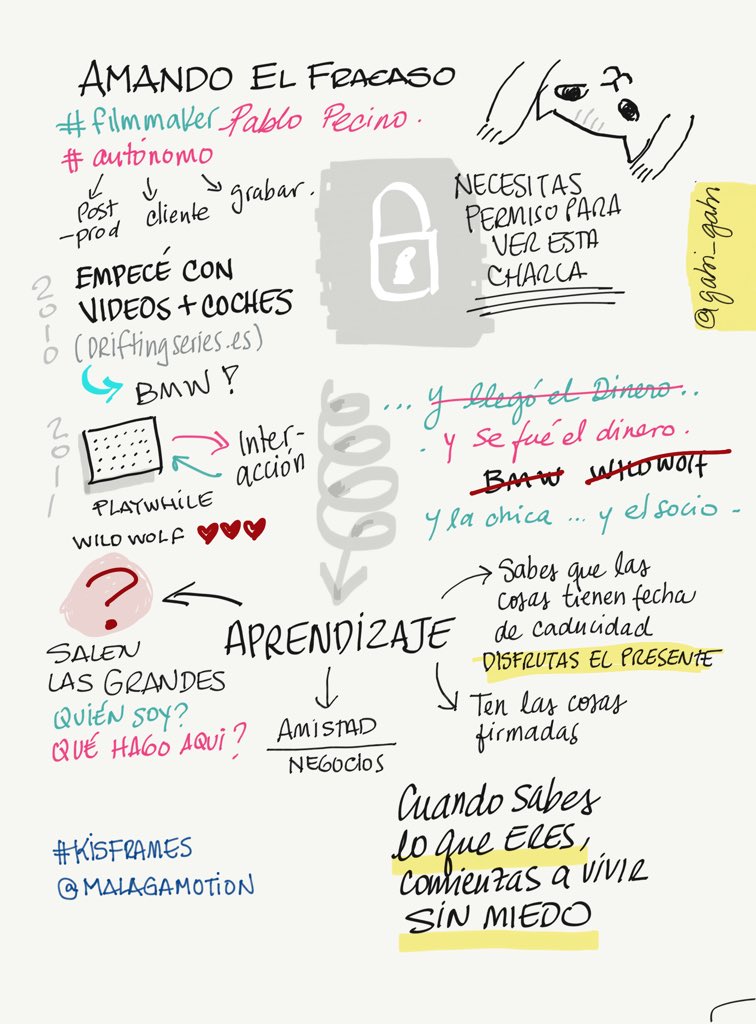 AMANDO EL FRACASO
#filmmaker Pablo Pecino.
# autónomo
Post
-prod
cliente
grabar.
NECESITAS
PERMISO PARA
VER ESTA
CHARCA
@gabi_gabi
2010
EMPECÉ CON
VIDEOS + COCHES
(DRiftingseries.es)
BMW!
2011
Inter-
acción
PLAYWHILE
WILD WOLF
... y llegó el Dinero..
. y se fué el dinero.
BMW WILD WOLF
y la chica ... y el socio -
?
SALEN
LAS GRANDES
QUIÉN SOY?
QUÉ HAGO AQUI?
APRENDIZAJE
Sabes que las
cosas tienen fecha
de caducidad
DISFRUTAS EL PRESENTE
Ten las cosas
firmadas
AMISTAD
NEGOCIOS
Cuando sabes
lo que ERES,
comienzas a vivir
SIN MIEDO
#KISFRAMES
@MALAGAMOTION